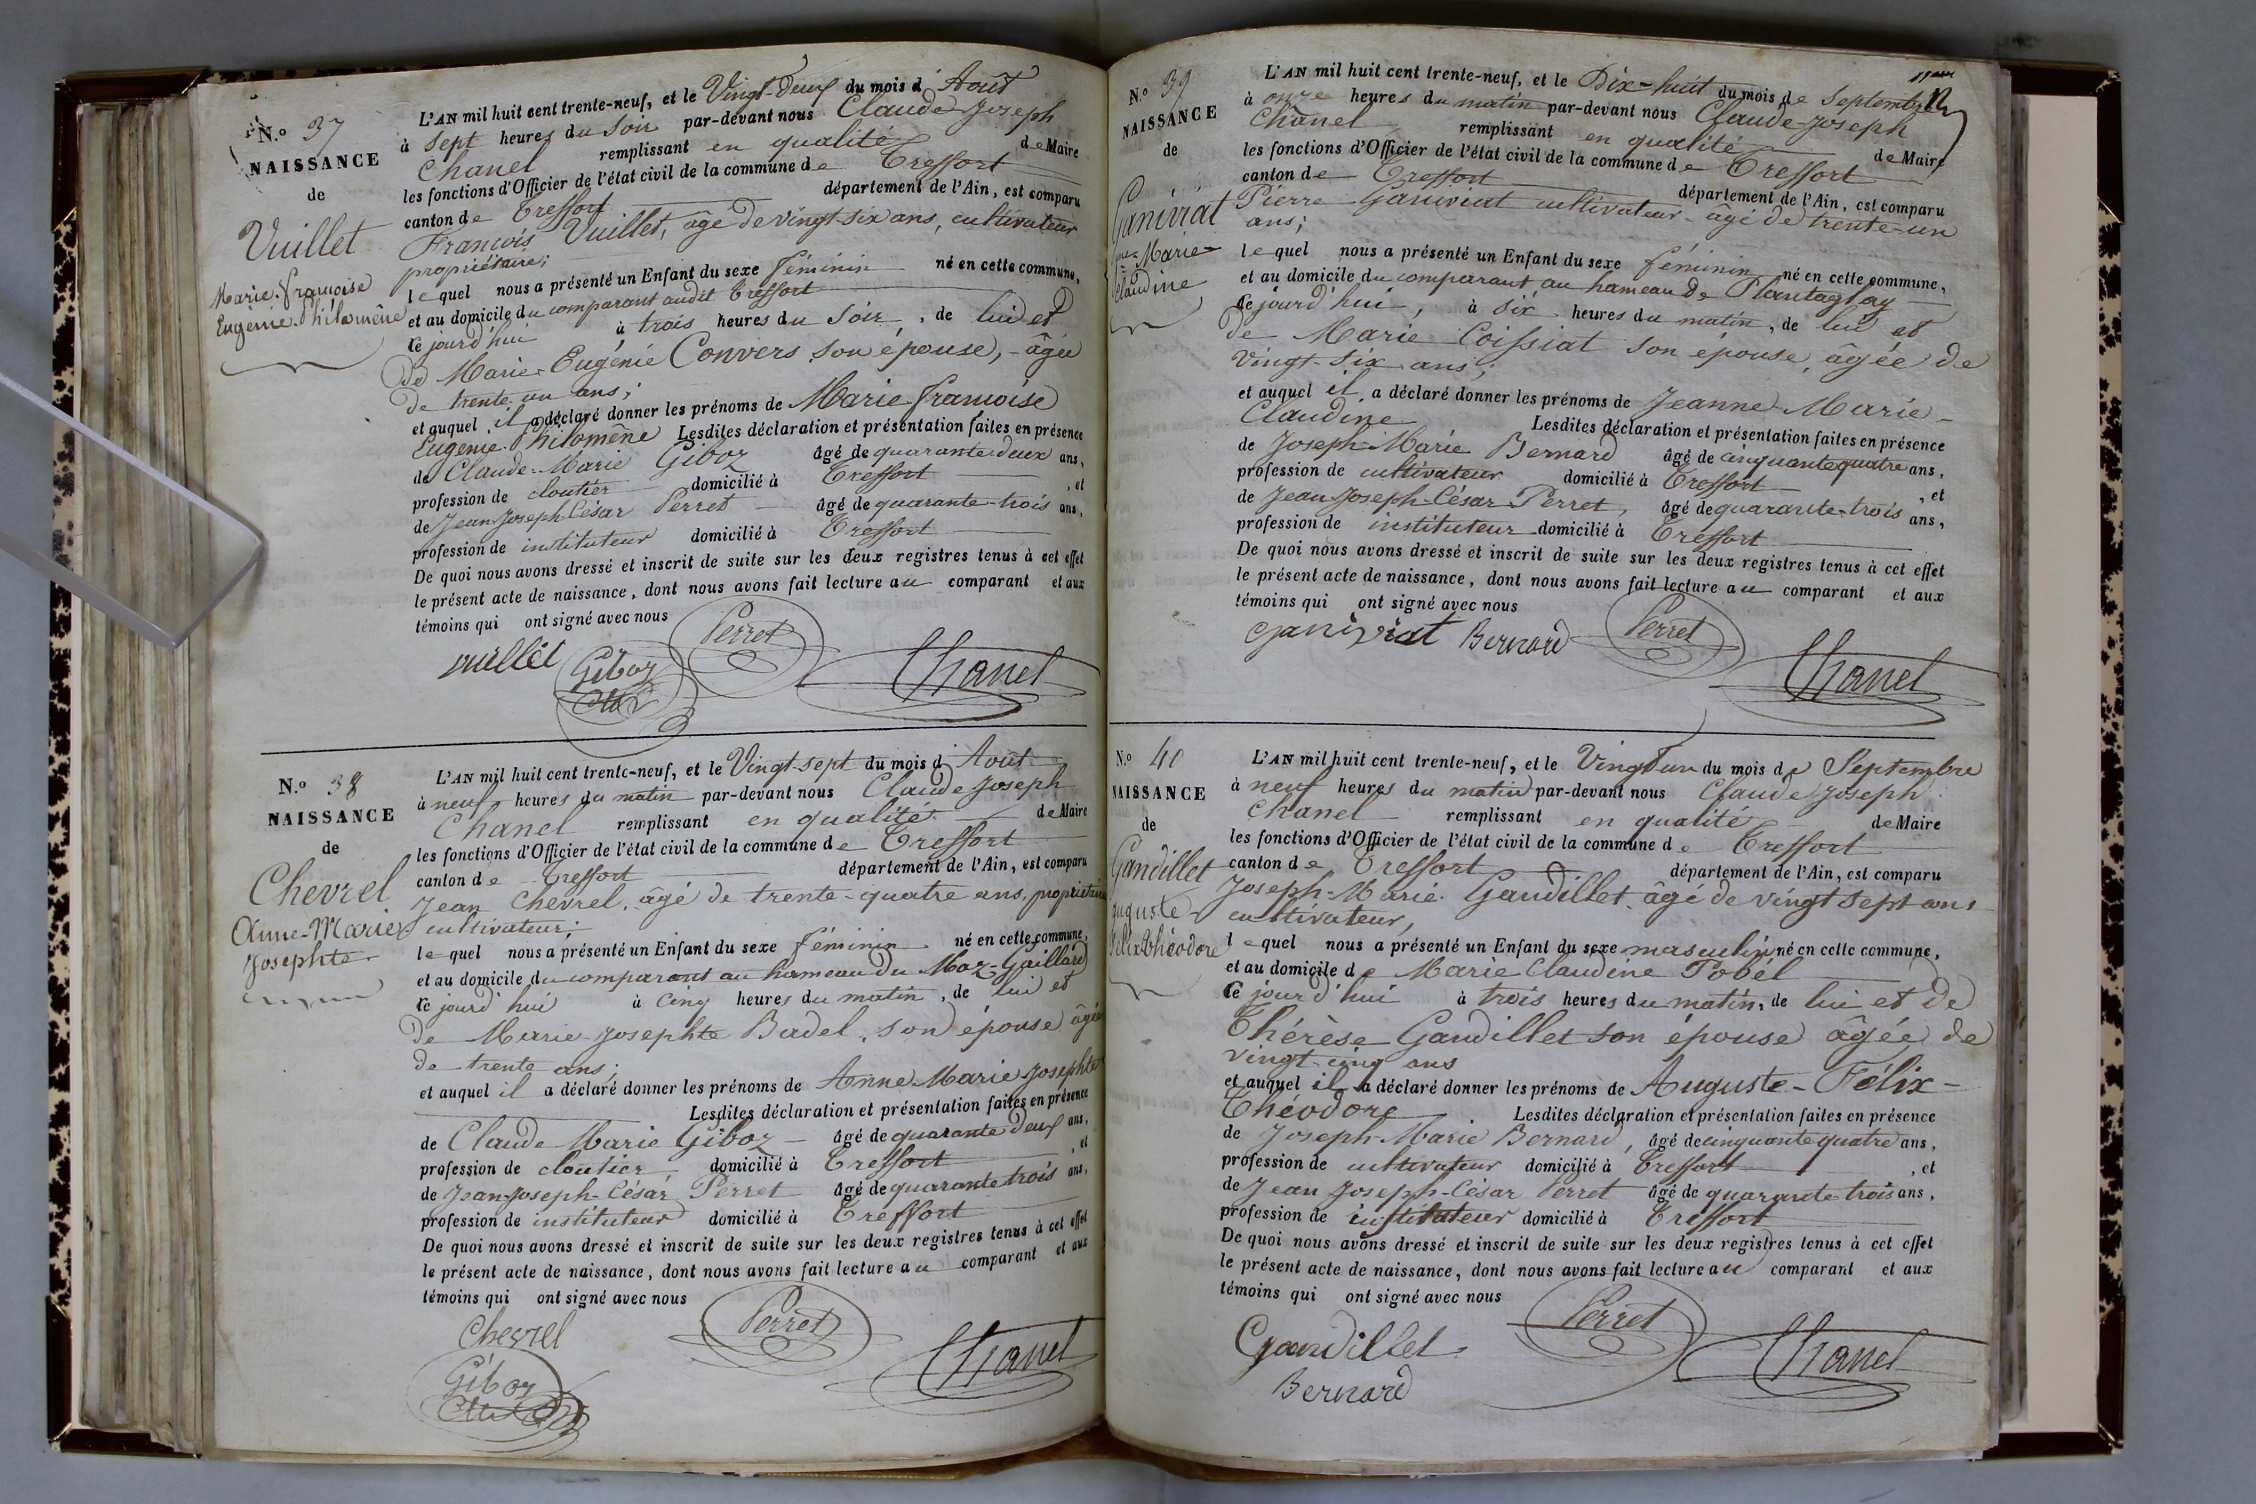 N.o 37
NAISSANCE
de
Vuillet
Marie-françoise
Eugénie-Philomène
L'AN mil huit cent trente-neuf, et le Vingt-Deux du mois d'Août
à Sept heures du Soir par-devant nous Claude Joseph
Chanel remplissant en qualité de Maire
les fonctions d'Officier de l'état civil de la commune de Treffort
canton de Treffort département de l'Ain, est comparu
François Vuillet, âgé de vingt six ans, cultivateur
propriétaire;
lequel nous a présenté un Enfant du sexe féminin né en cette commune,
et au domicile du comparant audit Treffort
ce jourd'hui à trois heures du Soir, de lui et
de Marie-Eugénie Convers son épouse, âgée
de trente un ans;
et auquel il a déclaré donner les prénoms de Marie françoise
Eugénie Philomène Lesdites déclaration et présentation faites en présence
de Claude-Marie Giboz âgé de quarante deux ans,
profession de cloutier domicilié à Treffort, et
de Jean-Joseph-César Perret âgé de quarante-trois ans,
profession de instituteur domicilié à Treffort
De quoi nous avons dressé et inscrit de suite sur les deux registres tenus à cet effet
le présent acte de naissance, dont nous avons fait lecture au comparant et aux
témoins qui ont signé avec nous
vuillet Giboz Perret Chanel
N.o 38
NAISSANCE
de
Chevrel
Anne-Marie
Josephte
L'AN mil huit cent trente-neuf, et le Vingt-sept du mois d'Août
à neuf heures du matin par-devant nous Claude Joseph
Chanel remplissant en qualité de Maire
les fonctions d'Officier de l'état civil de la commune de Treffort
canton de Treffort département de l'Ain, est comparu
Jean Chevrel, âgé de trente-quatre ans, propriétaire
cultivateur;
lequel nous a présenté un Enfant du sexe féminin né en cette commune,
et au domicile du comparant au hameau du Maz-Gaillard
ce jourd'hui à cinq heures du matin, de lui et
de Marie-Josephte Badel, son épouse âgée
de trente ans;
et auquel il a déclaré donner les prénoms de Anne Marie Josephte
Lesdites déclaration et présentation faites en présence
de Claude Marie Giboz âgé de quarante deux ans,
profession de cloutier domicilié à Treffort, et
de Jean-Joseph-César Perret âgé de quarante trois ans,
profession de instituteur domicilié à Treffort
De quoi nous avons dressé et inscrit de suite sur les deux registres tenus à cet effet
le présent acte de naissance, dont nous avons fait lecture au comparant et aux
témoins qui ont signé avec nous
Chevrel Perret Chanel
Giboz
N.o 39
NAISSANCE
de
Ganiviat
Marie
Claudine
L'AN mil huit cent trente-neuf, et le Dix-huit du mois de Septembre
à onze heures du matin par-devant nous Claude-Joseph
Chanel remplissant en qualité de Maire
les fonctions d'Officier de l'état civil de la commune de Treffort
canton de Treffort département de l'Ain, est comparu
Pierre Ganiviat cultivateur âgé de trente-un
ans;
lequel nous a présenté un Enfant du sexe féminin né en cette commune,
et au domicile du comparant au hameau de Plantaglay
ce jourd'hui, à six heures du matin, de lui et
de Marie Coissiat son épouse, âgée de
vingt-six ans;
et auquel il a déclaré donner les prénoms de Jeanne-Marie-
Claudine Lesdites déclaration et présentation faites en présence
de Joseph-Marie Bernard âgé de cinquante quatre ans,
profession de cultivateur domicilié à Treffort, et
de Jean-Joseph-César Perret, âgé de quarante-trois ans,
profession de instituteur domicilié à Treffort
De quoi nous avons dressé et inscrit de suite sur les deux registres tenus à cet effet
le présent acte de naissance, dont nous avons fait lecture au comparant et aux
témoins qui ont signé avec nous
ganiviat Bernard Perret Chanel
N.o 40
NAISSANCE
de
Gandillet
Auguste
Félix Théodore
L'AN mil huit cent trente-neuf, et le Vingt un du mois de Septembre
à neuf heures du matin par-devant nous Claude Joseph
Chanel remplissant en qualité de Maire
les fonctions d'Officier de l'état civil de la commune de Treffort
canton de Treffort département de l'Ain, est comparu
Joseph-Marie Gandillet, âgé de vingt sept ans
cultivateur,
lequel nous a présenté un Enfant du sexe masculin né en cette commune,
et au domicile de Marie Claudine Pobel
ce jourd'hui à trois heures du matin, de lui et de
Thérèse Gandillet son épouse âgée de
vingt-cinq ans
et auquel il a déclaré donner les prénoms de Auguste-Félix-
Théodore Lesdites déclaration et présentation faites en présence
de Joseph-Marie Bernard, âgé de cinquante quatre ans,
profession de cultivateur domicilié à Treffort, et
de Jean Joseph-César Perret âgé de quarante trois ans,
profession de instituteur domicilié à Treffort
De quoi nous avons dressé et inscrit de suite sur les deux registres tenus à cet effet
le présent acte de naissance, dont nous avons fait lecture au comparant et aux
témoins qui ont signé avec nous
Gandillet Perret Chanel
Bernard